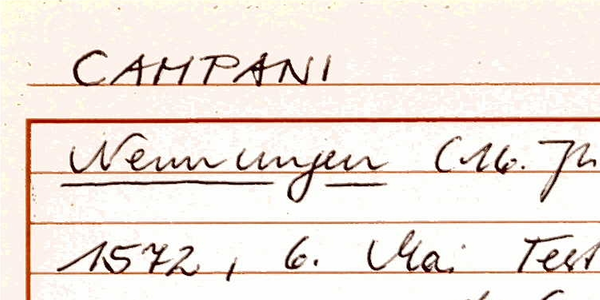 CAMPANI
Nennungen (16. Jh
1572, 6. Mai Test